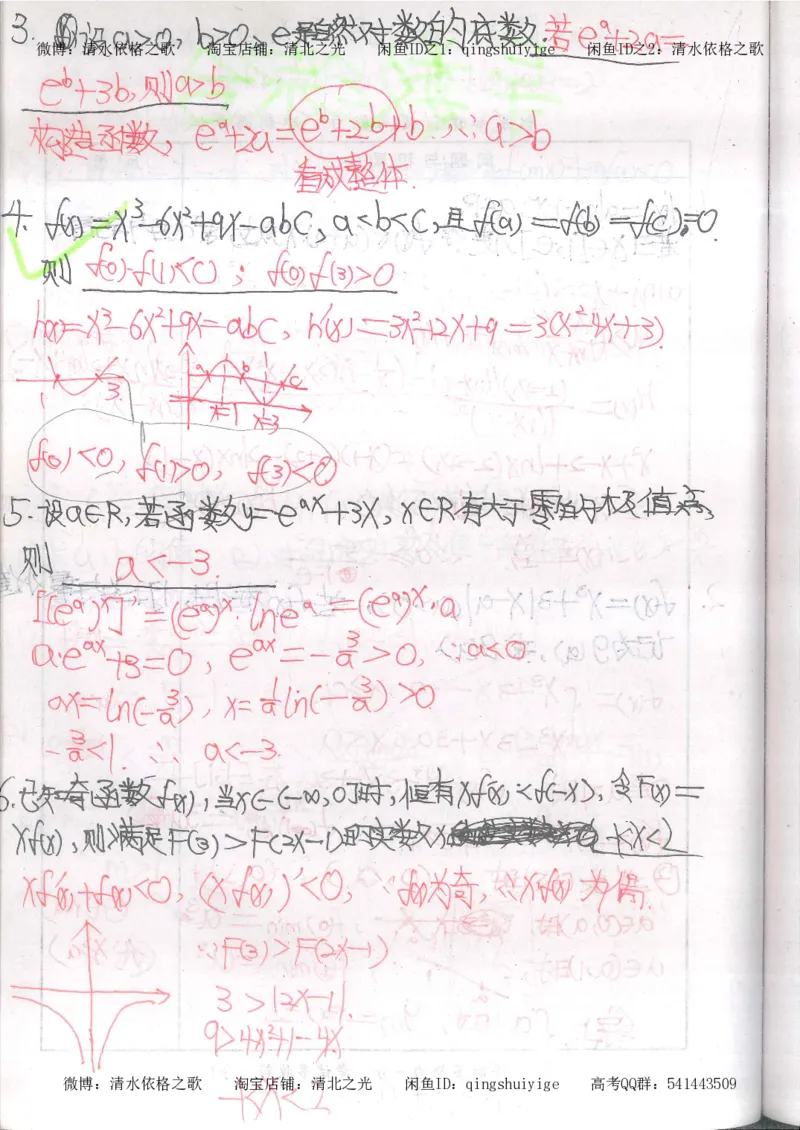 3. 设a>0, b>0, e是自然对数的底数. 若eᵃ+2a=
微博：清水依格之歌 淘宝店铺：清北之光 闲鱼ID之1：qingshuiyige 闲鱼ID之2：清水依格之歌
eᵇ+3b, 则a>b
构造函数, eᵃ+2a=eᵇ+2b+b, ∴a>b
看成整体.
4. f(x)=x³-6x²+9x-abc, a<b<c, 且f(a)=f(b)=f(c)=0.
则 f(0)·f(1)<0; f(0)f(3)>0
h(x)=x³-6x²+9x=abc, h'(x)=3x²-12x+9=3(x²-4x+3).
1 3 a 1 b c x=1 x=3
f(0)<0, f(1)>0, f(3)<0
5. 设a∈R, 若函数y=eᵃˣ+3x, x∈R有大于零的极值点,
则 a<-3
[(eᵃ)ˣ]'=(eᵃ)ˣ·lneᵃ=(eᵃ)ˣ·a
a·eᵃˣ+3=0, eᵃˣ=-3/a>0, ∴a<0
ax=ln(-3/a), x=1/a ln(-3/a)>0
-3/a<1. ∴ a<-3.
6. 已知奇函数f(x), 当x∈(-∞,0]时, 恒有xf'(x)<f(-x), 令F(x)=
xf(x), 则满足F(3)>F(2x-1)的实数x -1<x<2
xf'(x)+f(x)<0, (xf(x))'<0, ∵f(x)为奇, xf(x)为偶.
∵F(3)>F(2x-1)
3>|2x-1|.
9>4x²+1-4x
微博：清水依格之歌 淘宝店铺：清北之光 闲鱼ID：qingshuiyige 高考QQ群：541443509
-1<x<2